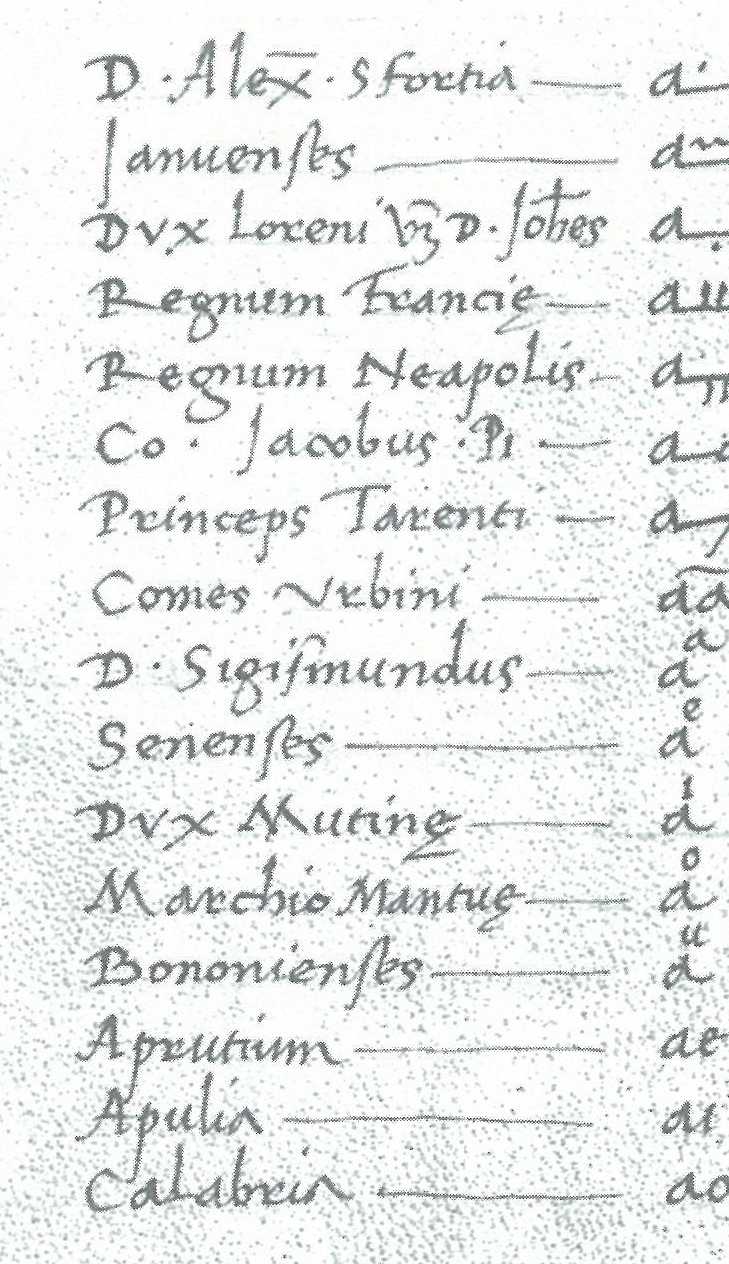 D · Alex̄ · Sfortia — a
Januenses — a
Dux Loreni D. Joħes a
Regnum Francię — a
Regnum Neapolis — a
Co · Jacobus · Pi — a
Princeps Tarenti — a
Comes Urbini — aa
D · Sigismundus — aᵃ
Senenses — aᵉ
Dux Mutinę — aⁱ
Marchio Mantuę — aᵒ
Bononienses — aᵘ
Aprutium — ae
Apulia — ai
Calabria — ao